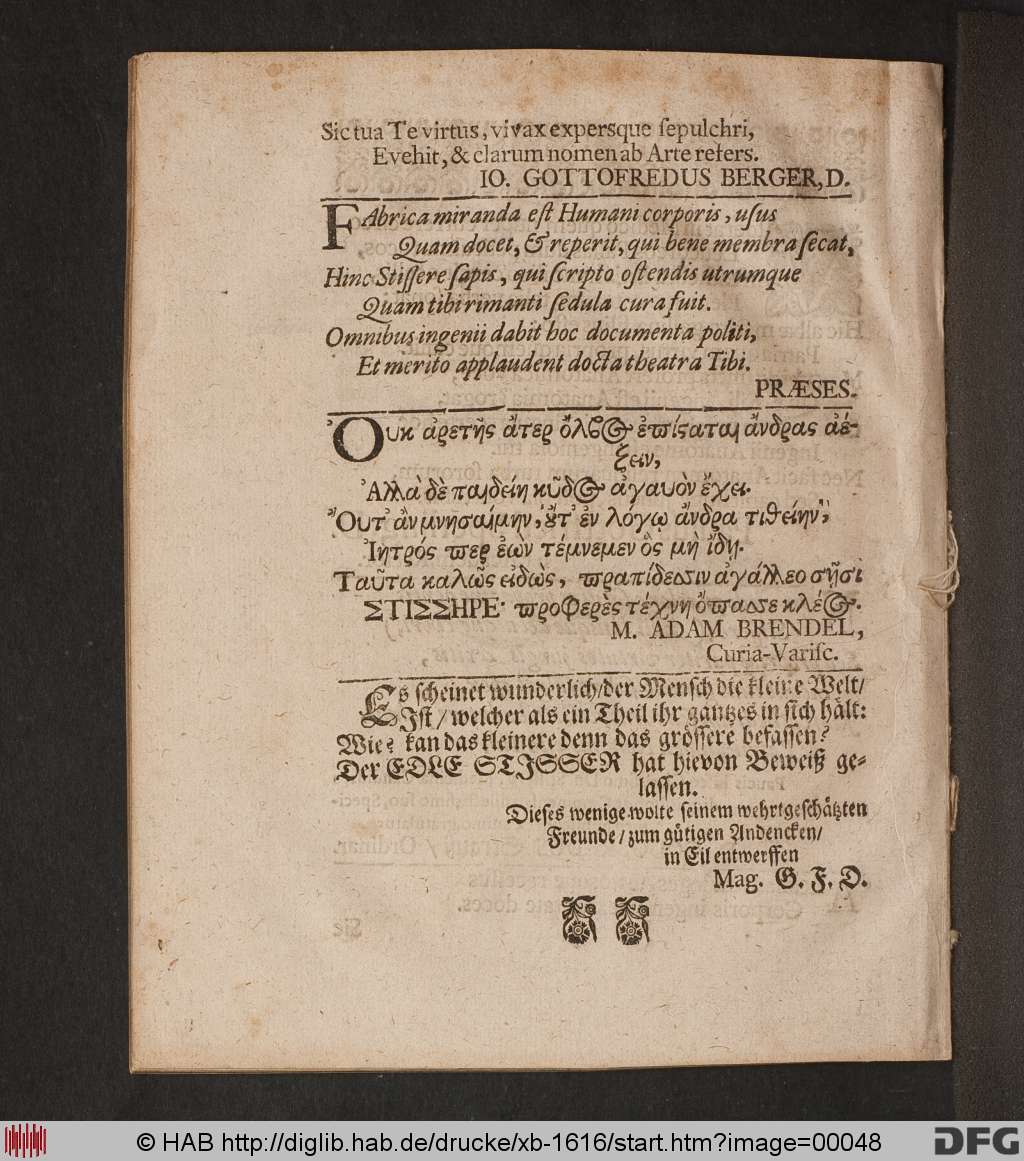 Sic tua Te virtus, vivax expersque sepulchri,
Evehit, & clarum nomen ab Arte refers.
IO. GOTTOFREDUS BERGER, D.
FAbrica miranda est Humani corporis, usus
Quam docet, & reperit, qui bene membra secat,
Hinc Stissere sapis, qui scripto ostendis utrumque
Quam tibi rimanti sedula cura fuit.
Omnibus ingenii dabit hoc documenta politi,
Et merito applaudent docta theatra Tibi.
PRÆSES.
Ὀυκ ἀρετῆς ἄτερ ὄλβος ἐπίσαται ἄνδρας ἀέ-
ξειν,
Ἀλλὰ δὲ παιδείη κῦδος ἀγαυὸν ἔχει.
Ὄυτ' ἂν μνησαίμην, ὄυτ' ἐν λόγῳ ἄνδρα τιθείην,
Ἰητρός περ ἐὼν τέμνεμεν ὃς μὴ ἴδῃ.
Ταῦτα καλῶς εἰδὼς, πραπίδεσσιν ἀγάλλεο σῇσι
ΣΤΙΣΣΗΡΕ· προφερὲς τέχνῃ ὄπασσε κλέος.
M. ADAM BRENDEL,
Curia-Varisc.
Es scheinet wunderlich/ der Mensch die kleine Welt/
Ist / welcher als ein Theil ihr gantzes in sich hält:
Wie? kan das kleinere denn das grössere befassen?
Der EDLE STISSER hat hievon Beweiß ge-
lassen.
Dieses wenige wolte seinem wehrtgeschätzten
Freunde / zum gütigen Andencken/
in Eil entwerffen
Mag. G. F. D.
© HAB http://diglib.hab.de/drucke/xb-1616/start.htm?image=00048
DFG